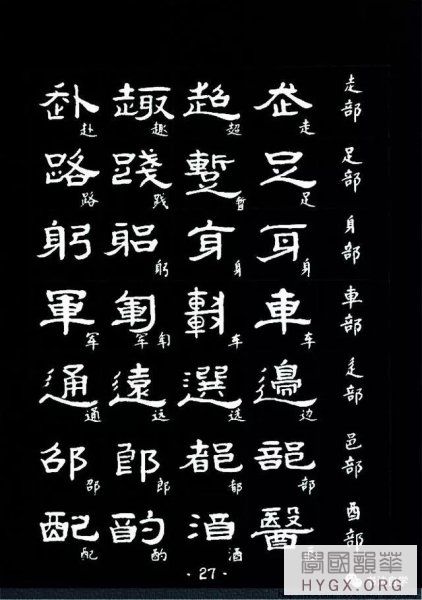 走部 走 走 超 超 趣 趣 赴 赴
足部 足 足 暂 踐 践 路 路
身部 身 身 身 身 躬 躬 躬
車部 車 车 车 军 軍 军
部 邊 边 選 选 遠 远 通 通
邑部 部 部 都 都 郎 郎 邵 邵
酉部 醫 酒 酒 酌 酌 配 配
· 27 ·
學國韻華
HYGX.ORG